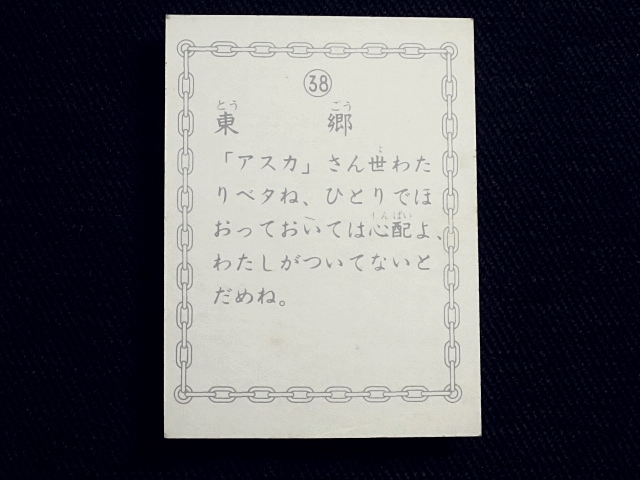 38
とう ごう
東 郷
「アスカ」さん世わた
よ
りベタね、ひとりでほ
おっておいては心配よ、
しんぱい
わたしがついてないと
だめね。